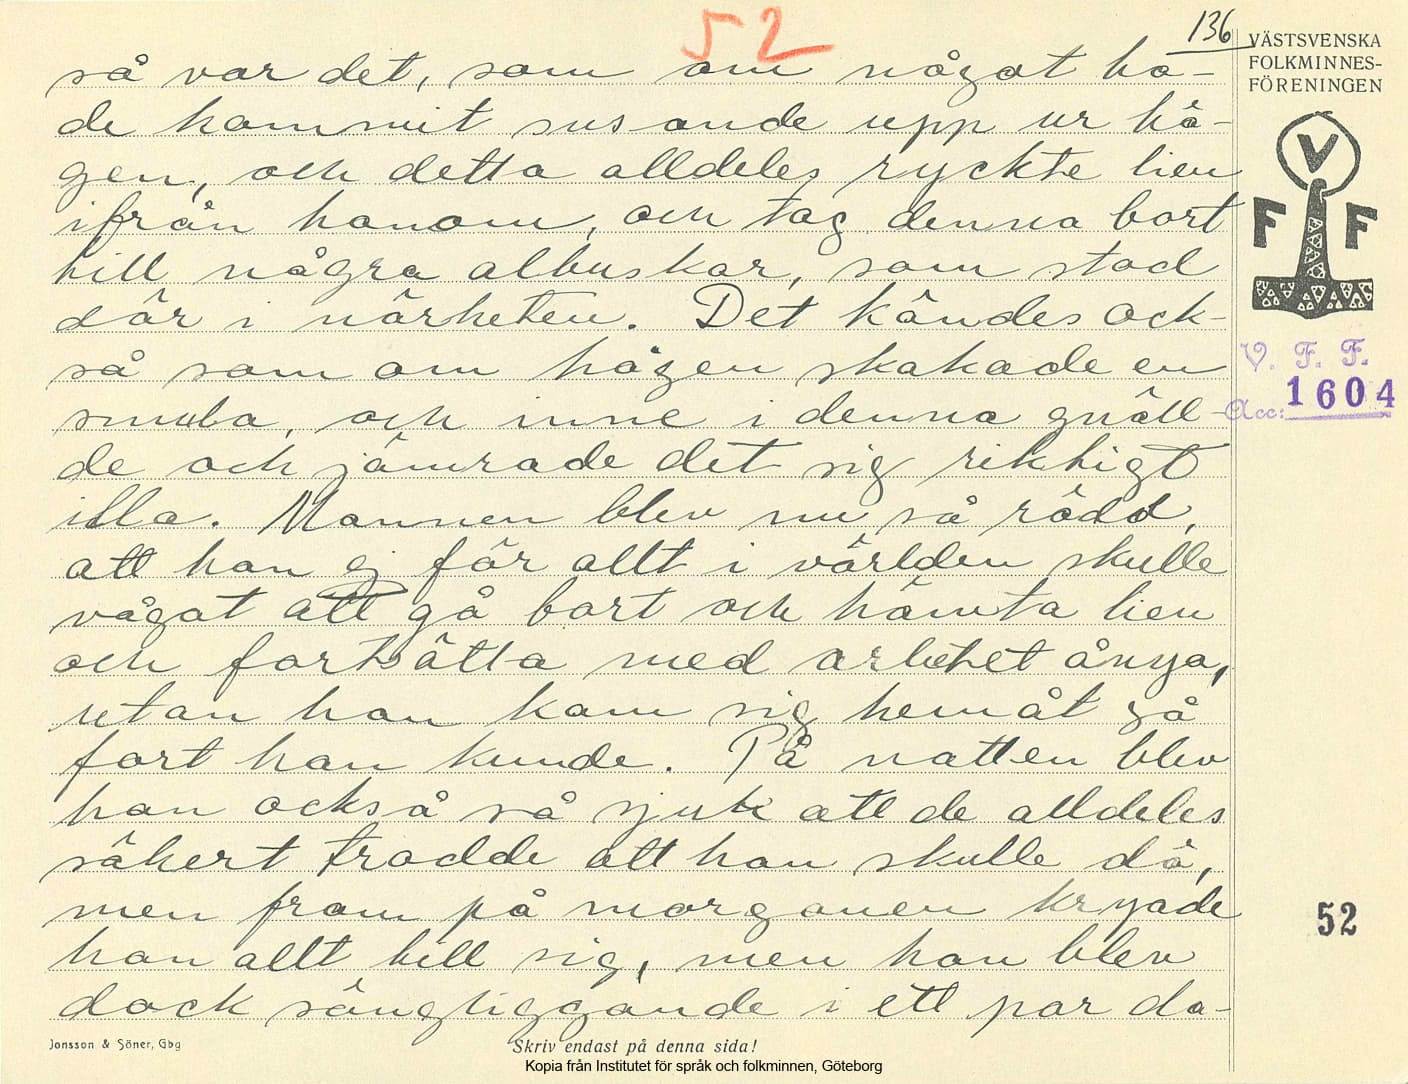 52
136
VÄSTSVENSKA
FOLKMINNES-
FÖRENINGEN
V
F F
V. F. F.
Acc: 1604
så var det, som om något ha-
de kommit susande upp ur hö-
gen, och detta alldeles ryckte lien
ifrån honom, och tog denna bort
till några albuskar, som stod
där i närheten. Det kändes ock-
så som om högen skakade en
smula, och inne i denna gnäll-
de och jämrade det sig riktigt
illa. Mannen blev nu så rädd,
att han ej för allt i världen skulle
vågat att gå bort och hämta lien
och fortsätta med arbetet ånyo,
utan han kom sig hemåt så
fort han kunde. På natten blev
han också så sjuk att de alldeles
säkert trodde att han skulle dö,
men fram på morgonen kryade
han allt till sig, men han blev
dock sängliggande i ett par da-
52
Jonsson & Söner, Gbg
Skriv endast på denna sida!
Kopia från Institutet för språk och folkminnen, Göteborg